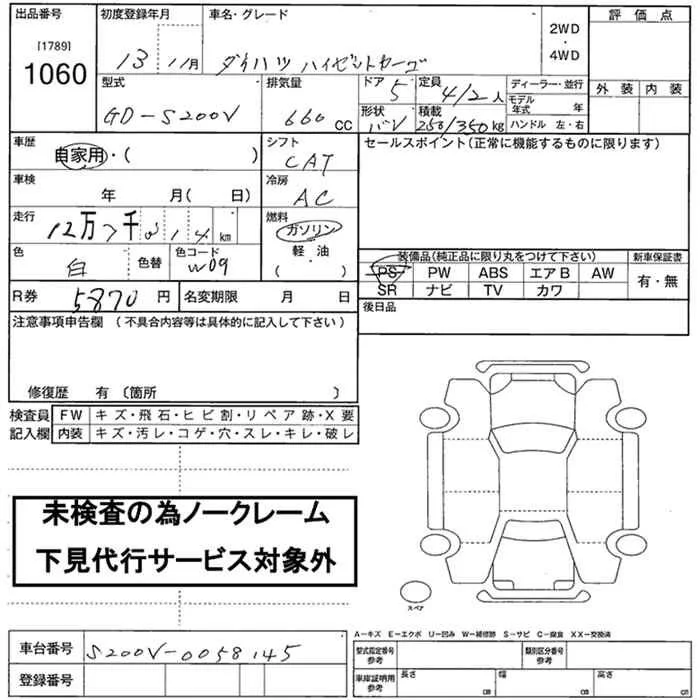 出品番号 初度登録年月 車名・グレード 評価点
[1789]
1060
13 11月 ダイハツ ハイゼットカーゴ
2WD
・
4WD
型式 排気量 ドア 定員 ディーラー・並行 外装 内装
GD-S200V 660 CC 5 4/2人
モデル年式 年
形状 積載
バン 250/350kg ハンドル 左・右
車歴 シフト セールスポイント(正常に機能するものに限ります)
自家用・( ) CAT
車検 冷房
年 月( 日) AC
走行 燃料
12万7千 14km ガソリン
軽・油
( )
色 色替 色コード
白 W09
装備品(純正品に限り丸をつけて下さい) 新車保証書
PS PW ABS エアB AW 有・無
SR ナビ TV カワ
R券 5870円 名変期限 月 日
後日品
注意事項申告欄(不具合内容等は具体的に記入して下さい)
修復歴 有〔箇所 〕
検査員 FW キズ・飛石・ヒビ割・リペア跡・X要
記入欄 内装 キズ・汚レ・コゲ・穴・スレ・キレ・破レ
未検査の為ノークレーム
下見代行サービス対象外
スペア
A-キズ E-エクボ U-凹み W-補修跡 S-サビ C-腐食 XX-交換済
車台番号 S200V-0058145
登録番号
型式指定番号 参考 類別区分番号 参考
車庫証明用 参考 長さ cm 幅 cm 高さ cm